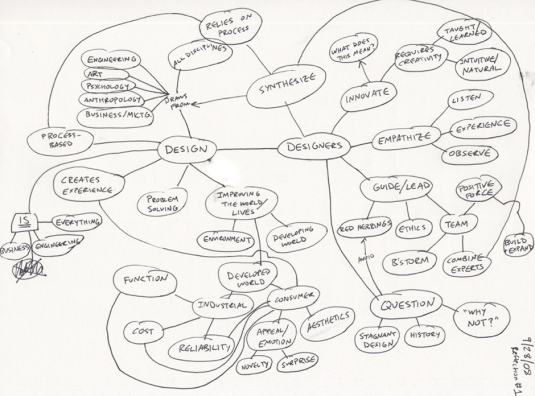 RELIES ON
PROCESS
ALL DISCIPLINES
ENGINEERING
ART
PSYCHOLOGY
ANTHROPOLOGY
BUSINESS/MKTG.
DRAWS
FROM
SYNTHESIZE
WHAT DOES
THIS MEAN?
REQUIRES
CREATIVITY
TAUGHT/
LEARNED
INTUITIVE/
NATURAL
INNOVATE
LISTEN
EMPATHIZE
EXPERIENCE
OBSERVE
PROCESS-
BASED
DESIGN
DESIGNERS
CREATES
EXPERIENCE
PROBLEM
SOLVING
IMPROVING
THE WORLD/
LIVES
GUIDE/LEAD
POSITIVE
FORCE
IS
EVERYTHING
BUSINESS
ENGINEERING
ENVIRONMENT
DEVELOPING
WORLD
RED HERRINGS
ETHICS
TEAM
BUILD
+ EXPAND
AVOID
B'STORM
COMBINE
EXPERTS
FUNCTION
DEVELOPED
WORLD
INDUSTRIAL
CONSUMER
COST
RELIABILITY
APPEAL/
EMOTION
AESTHETICS
NOVELTY
SURPRISE
QUESTION
"WHY
NOT?"
STAGNANT
DESIGN
HISTORY
9/28/08
Reflection #1